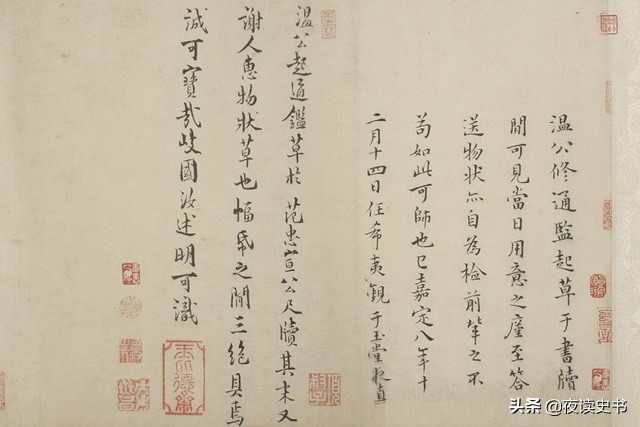 温公修通監起草于書牘
間可見當日用意之廑至答
送物狀亦自為檢前軰之不
苟如此可師也已嘉定八年十
二月十四日任希夷觀于玉堂夜直
温公起通鑑草於范忠宣公尺牘其末又
謝人惠物狀草也幅帋之間三絶具焉
誠可寶哉歧國汝述明可識
头条 @夜读史书